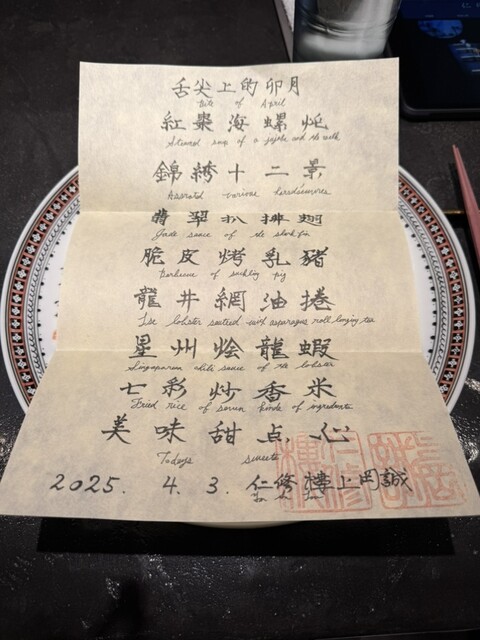 舌尖上的卯月
Bite of April
紅棗海螺炖
Steamed soup of a jujube and the
錦綉十二景
Assorted various horsdoeuvres
翡翠扒排翅
Jade sauce of the shark fin
脆皮烤乳豬
Barbecue of suckling pig
龍井網油捲
lobster sauteed with asparagus roll longjing tea
星州烩龍蝦
Singaporean chili sauce of the lobster
七彩炒香米
Fried rice of seven kinds of ingredients
美味甜点心
Todays sweets
2025. 4. 3. 仁修樓上岡誠